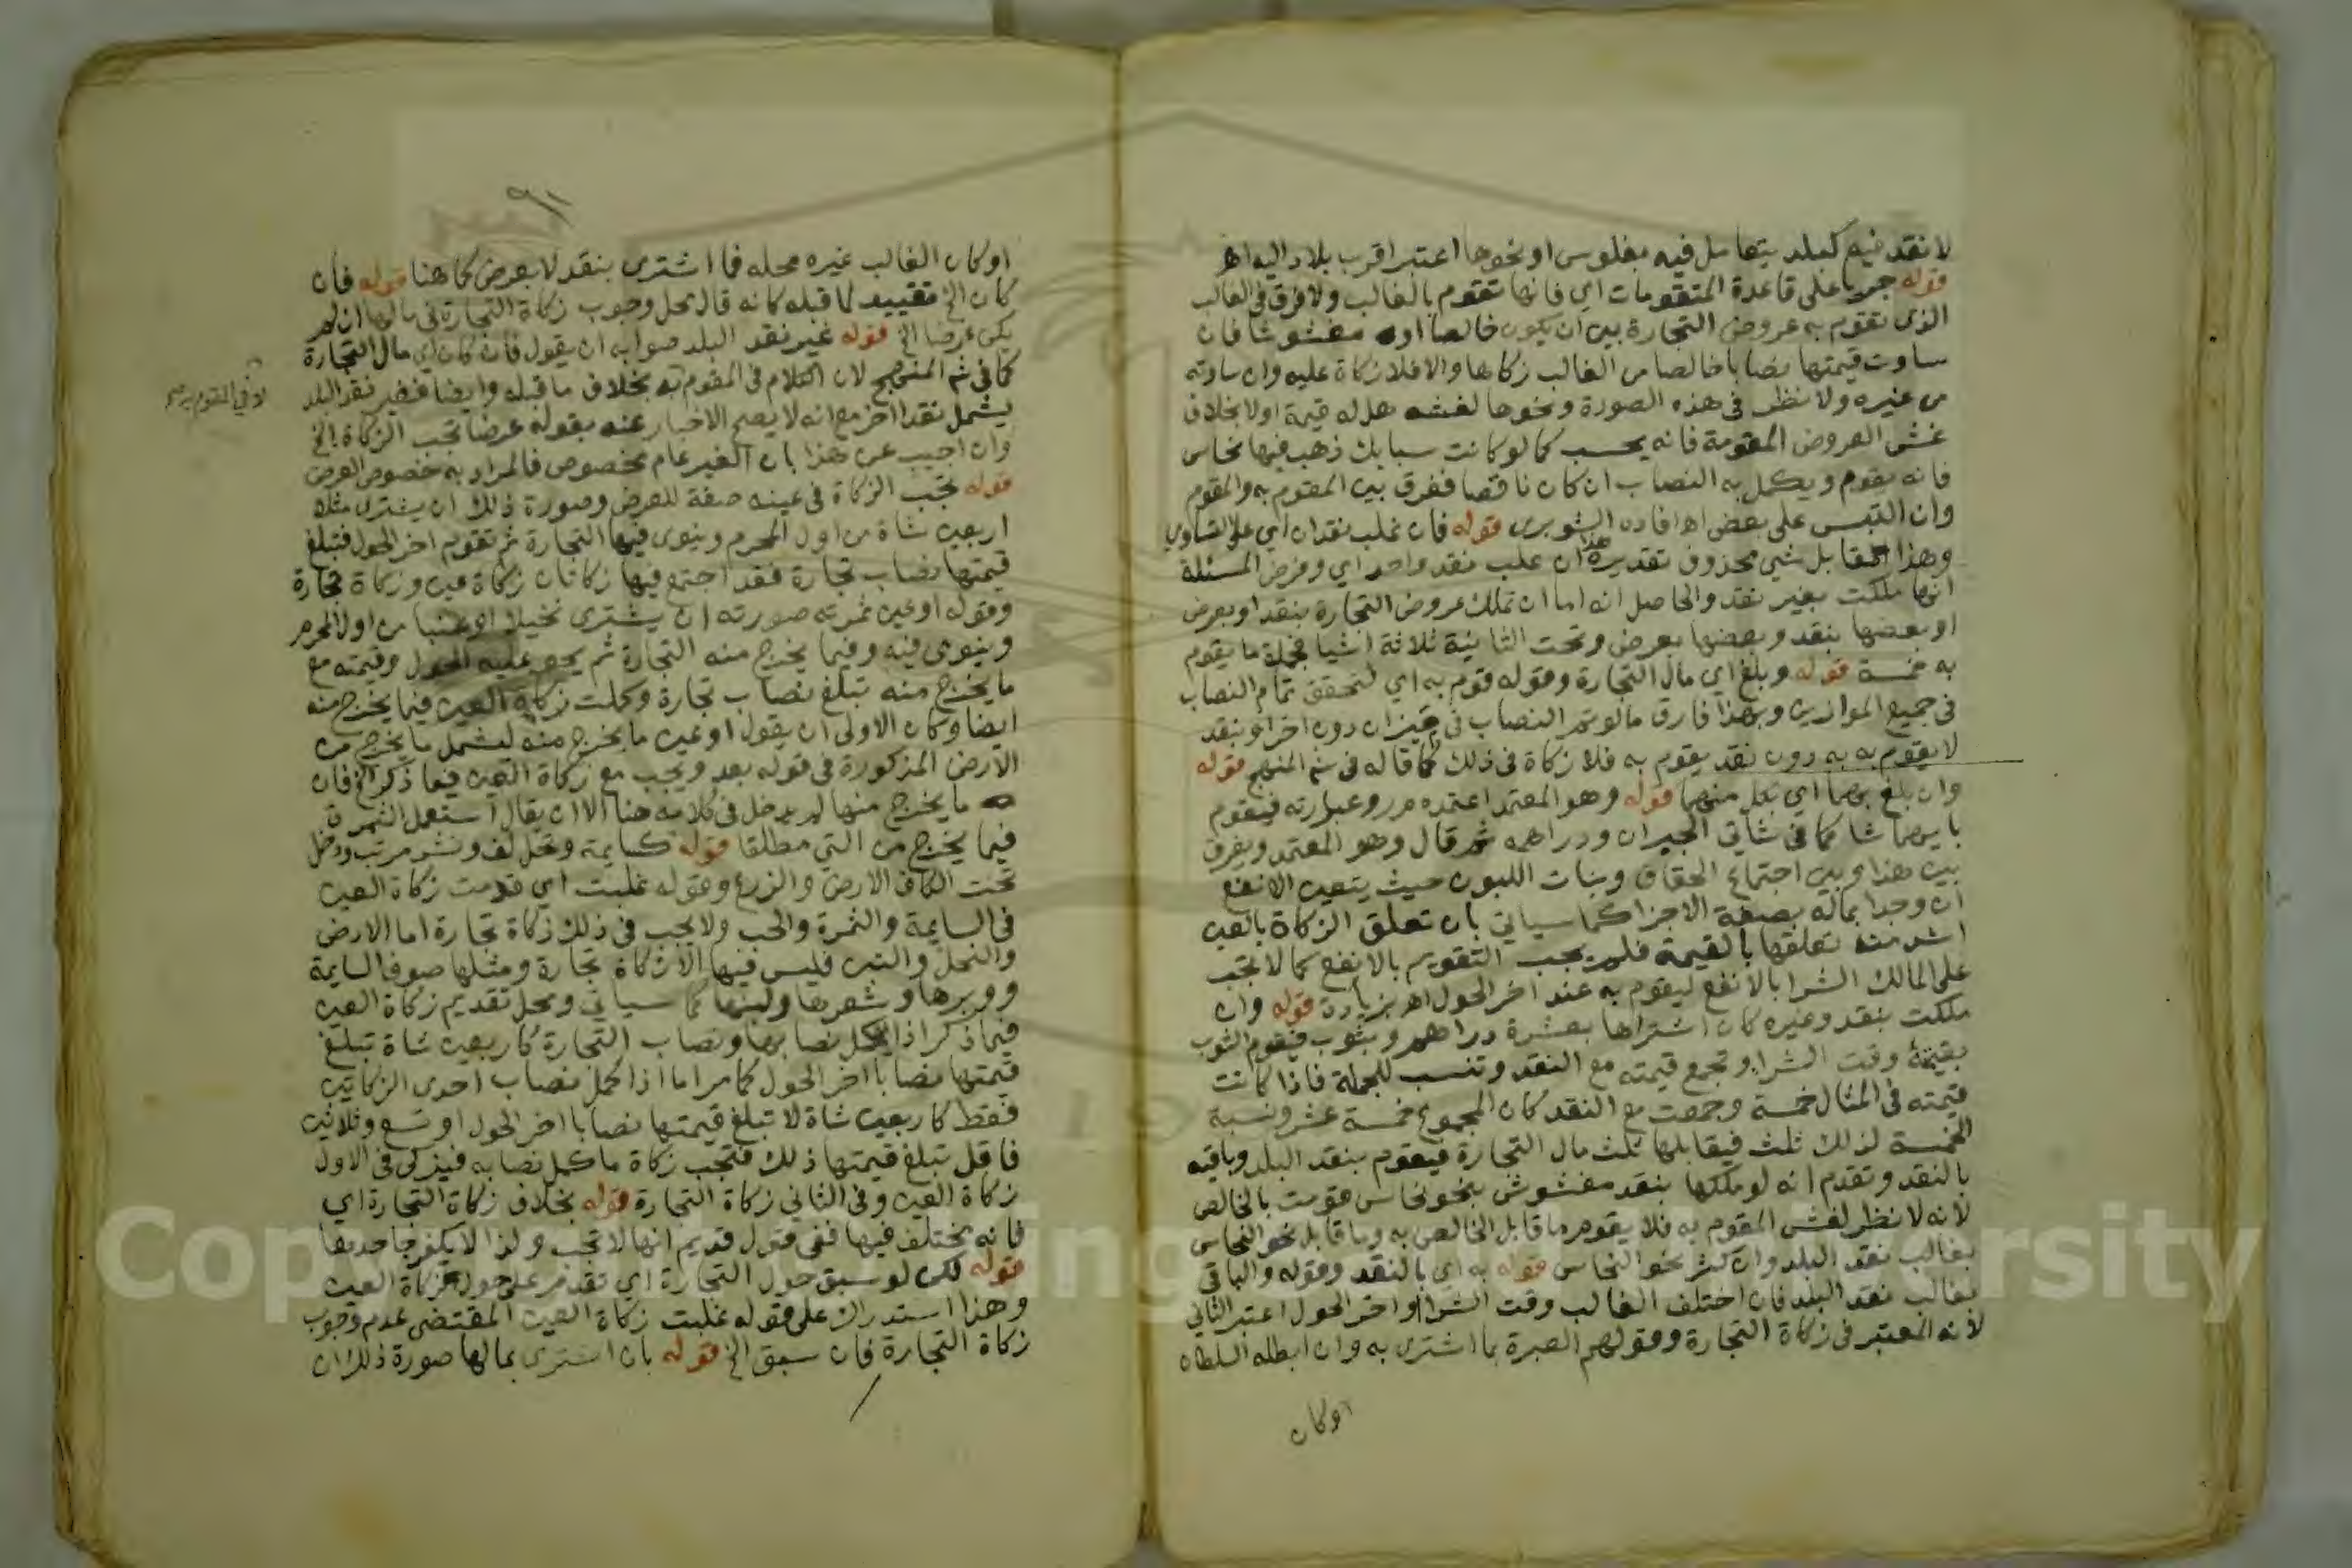 لا نقد فيه كبلد يتعامل فيه بفلوس او نحوها اعتبر اقرب بلاد اليه اهـ
قوله جريا على قاعدة المتقومات اي فانها تقوم بالغالب ولا فرق في الغالب
الذي تقوم به عروض التجارة بين ان يكون خالصا او مغشوشا فان
ساوت قيمتها نصابا خالصا من الغالب زكاها والا فلا زكاة عليه وان ساوته
من غيره ولا نظر في هذه الصورة ونحوها لغشه هل له قيمة اولا بخلاف
غش العروض المقومة فانه يحسب كما لو كانت سبايك ذهب فيها نحاس
فانه يقوم ويكمل به النصاب ان كان ناقصا ففرق بين المقوم به والمقوم
وان التبس على بعض اهـ افاده الشوبرى قوله فان غلب نقدان اي على التساوي
وهذا مقابل شي محذوف تقديره هذا ان غلب نقد واحد اي وفرض المسئلة
انها ملكت بغير نقد والحاصل انه اما ان تملك عروض التجارة بنقد او بعرض
او بعضها بنقد وبعضها بعرض وتحت الثانية ثلاثة اشيا فجملة ما يقوم
به خمسة قوله وبلغ اي مال التجارة وقوله قوم به اي لتحقق تمام النصاب
في جميع الموازين وبهذا فارق ما لو تم النصاب في ميزان دون اخر او بنقد
لا يقوم به به دون نقد يقوم به فلا زكاة في ذلك كما قاله في شم المنهج قوله
وان بلغ بهما اي بكل منهما قوله وهو المعتمد اعتمده مر وعبارته فيقوم
بايهما شا كما في شاتي الجبران ودراهمه ثم قال وهو المعتمد ويفرق
بين هذا وبين اجتماع الحقاق وبنات اللبون حيث يتعين الانفع
ان وجدا بماله بصفة الاجزا كما سياتي بان تعلق الزكاة بالعين
اشد منه تعلقها بالقيمة فلم يجب التقويم بالانفع كما لا تجب
على المالك الشرا بالانفع ليقوم به عند اخر الحول اهـ بزيادة قوله وان
ملكت بنقد وغيره كان اشتراها بعشرة دراهم وبثوب فيقوم الثوب
بقيمة وقت الشرا وتجمع قيمته مع النقد وتنسب للجملة فاذا كانت
قيمته في المثال خمسة وجمعت مع النقد كان المجموع خمسة عشر ونسبة
الخمسة لذلك ثلث فيقابلها ثلث مال التجارة فيقوم بنقد البلد وباقيه
بالنقد وتقدم انه لو ملكها بنقد مغشوش بنحو نحاس قومت بالخالص
لانه لا نظر لغش المقوم به فلا يقوم ما قابل الخالص به وما قابل نحو النحاس
بغالب نقد البلد وان كثر نحو النحاس قوله به اي بالنقد وقوله والباقي
بغالب نقد البلد فان اختلف الغالب وقت الشرا واخر الحول اعتبر الثاني
لانه المعتبر في زكاة التجارة وقولهم العبرة بما اشترى به وان ابطله السلطان
اوكان
٩١
او كان الغالب غيره محله فيما اشترى بنقد لا بعرض كما هنا قوله فان
كان الخ تقييد لما قبله كانه قال محل وجوب زكاة التجارة في مالها ان لم
يكن عرضا الخ قوله غير نقد البلد صوابه ان يقول فان كان اي مال التجارة
كما في شم المنهج لان الكلام في المقوم به بخلاف ما قبله وايضا فغير نقد البلد
يشمل نقدا اخر مع انه لا يصح الاخبار عنه بقوله عرضا تجب الزكاة الخ
وان اجيب عن هذا بان الغير عام مخصوص فالمراد به خصوص العرض
قوله تجب الزكاة في عينه صفة للعرض وصورة ذلك ان يشترى مثلا
اربعين شاة من اول المحرم وينوى فيها التجارة ثم تقوم اخر الحول فتبلغ
قيمتها نصاب تجارة فقد اجتمع فيها زكاتان زكاة عين وزكاة تجارة
وقوله او عين ثمرته صورته ان يشترى نخيلا او عنبا من اول المحرم
وينوى فيه وفيما يخرج منه التجارة ثم يحول عليه الحول وقيمته مع
ما يخرج منه تبلغ نصاب تجارة وكملت زكاة العين فيما يخرج منه
ايضا وكان الاولى ان يقول او عين ما يخرج منه ليشمل ما يخرج من
الارض المذكورة في قوله بعد ويجب مع زكاة العين فيما ذكر الخ فان
ما يخرج منها لم يدخل في كلامه هنا الا ان يقال استعمل الثمرة
فيما يخرج من الشي مطلقا قوله كسايمة ونخل لف ونشر مرتب ودخل
تحت الكاف الارض والزرع وقوله غلبت اي قدمت زكاة العين
في السايمة والثمرة والحب ولا يجب في ذلك زكاة تجارة اما الارض
والنخل والتبن فليس فيها الا زكاة تجارة ومثلها صوف السايمة
ووبرها وشعرها ولبنها كما سياتي ومحل تقديم زكاة العين
فيما ذكر اذا كمل نصابها ونصاب التجارة كاربعين شاة تبلغ
قيمتها نصابا اخر الحول كما مر اما اذا كمل نصاب احدى الزكاتين
فقط كاربعين شاة لا تبلغ قيمتها نصابا اخر الحول او تسع وثلاثين
فاقل تبلغ قيمتها ذلك فتجب زكاة ما كمل نصابه فيزكى في الاول
زكاة العين وفي الثاني زكاة التجارة قوله بخلاف زكاة التجارة اي
فانه يختلف فيها ففي قول قديم انها لا تجب ولذا لا يكفر جاحدها
قوله لكن لو سبق حول التجارة اي تقدم على حول زكاة العين
وهذا استدراك على قوله غلبت زكاة العين المقتضى عدم وجوب
زكاة التجارة فان سبق الخ قوله بان اشترى بمالها صورة ذلك ان
لا في المقوم